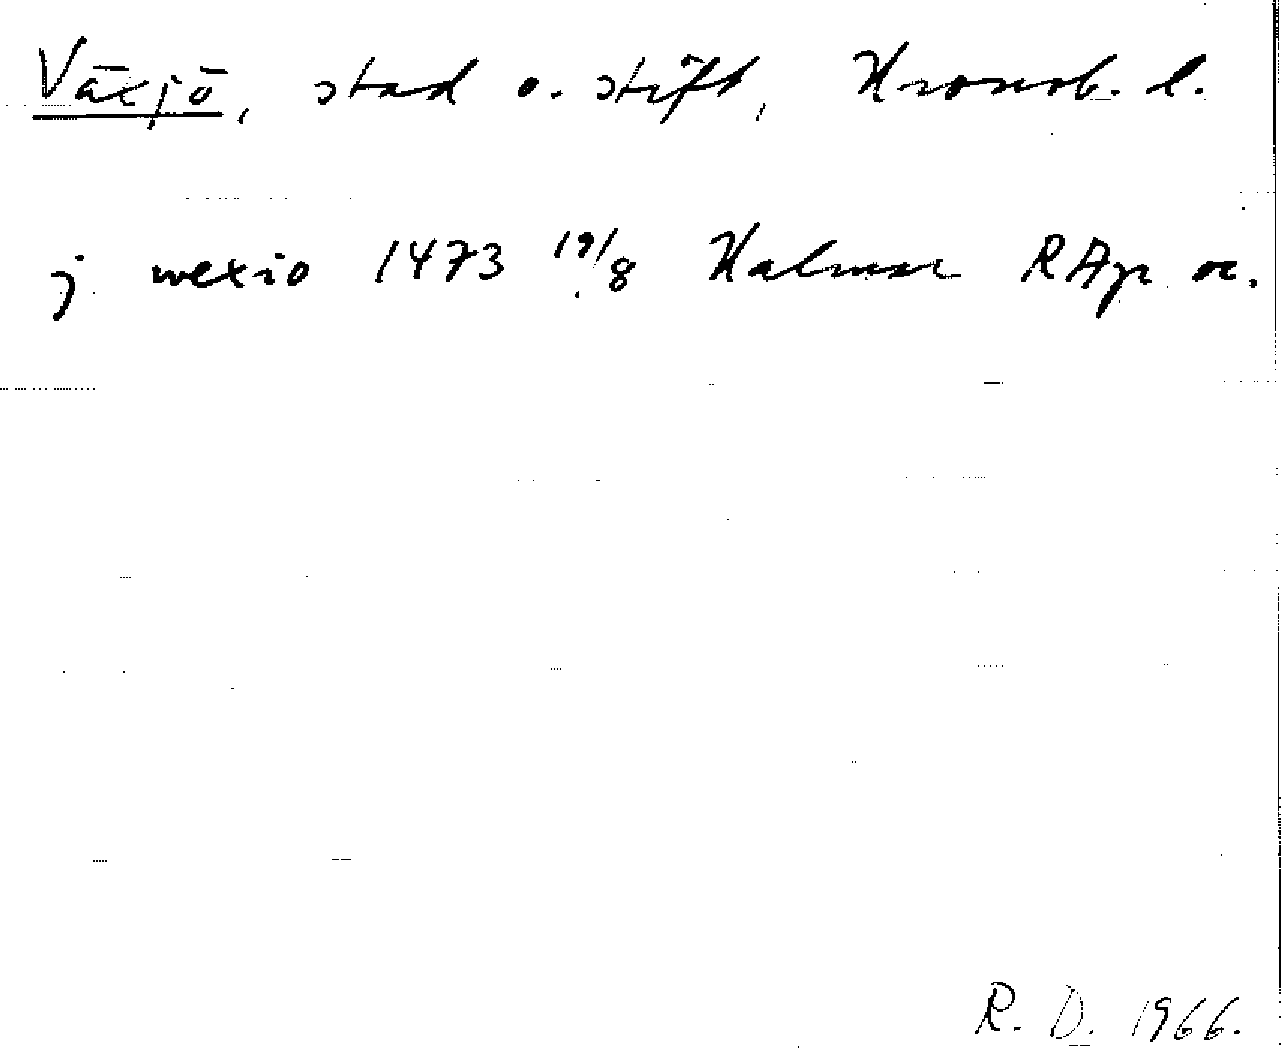 Växjö, stad o. stift, Kronob. l.
j wexio 1473 19/8 Kalmar RAp or.
R. D. 1966.